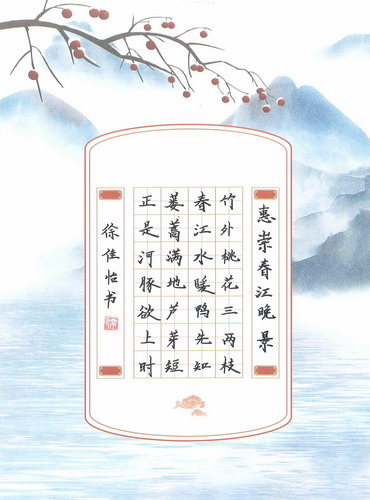 惠崇春江晚景
竹外桃花三两枝
春江水暖鸭先知
蒌蒿满地芦芽短
正是河豚欲上时
徐佳怡书